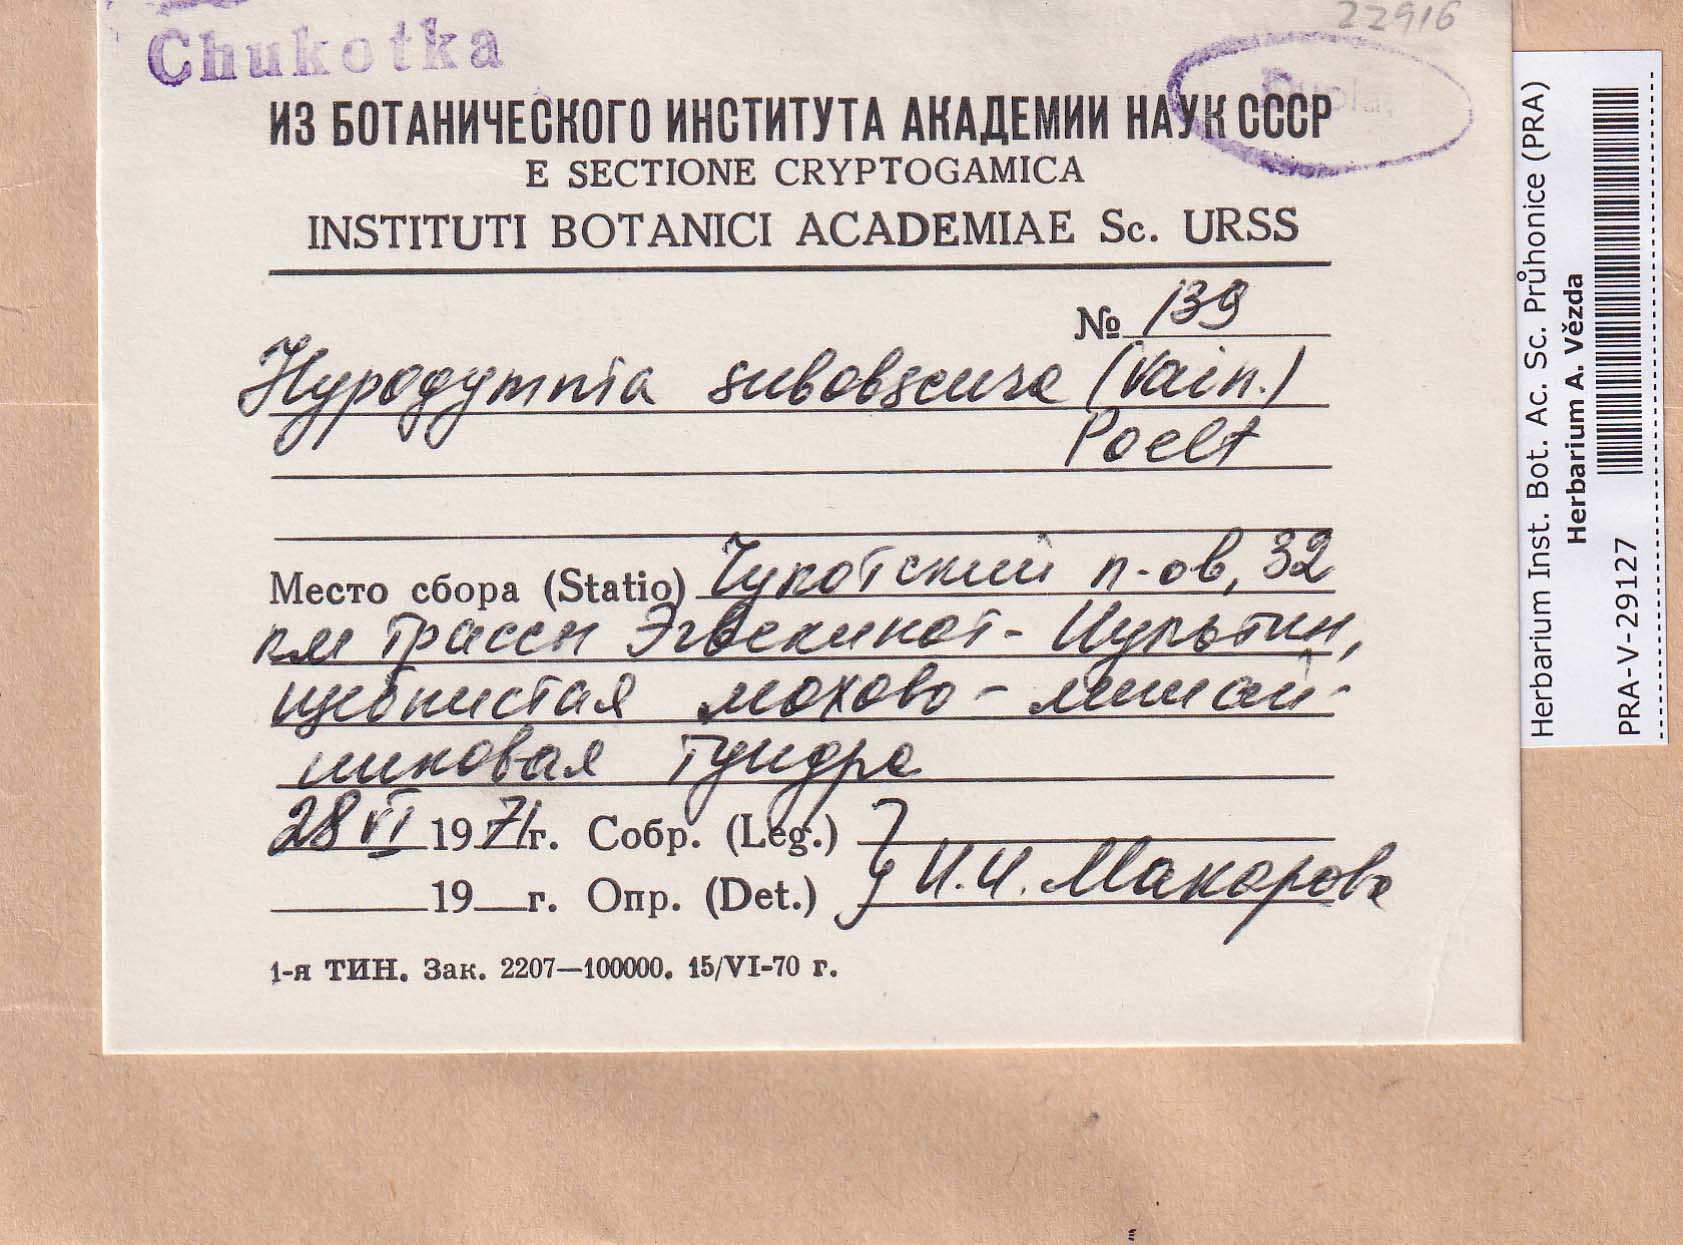 22916
Chukotka
ИЗ БОТАНИЧЕСКОГО ИНСТИТУТА АКАДЕМИИ НАУК СССР
E SECTIONE CRYPTOGAMICA
INSTITUTI BOTANICI ACADEMIAE Sc. URSS
№ 139
Hypogymnia subobscura (Vain.)
Poelt
Место сбора (Statio) Чукотский п-ов, 32
км трассы Эгвекинот - Иультин,
щебнистая мохово - лишай-
никовая тундра
28 VI 1971г. Собр. (Leg.)
И.И. Макарова
19 г. Опр. (Det.)
1-я ТИН. Зак. 2207—100000. 15/VI-70 г.
Herbarium Inst. Bot. Ac. Sc. Průhonice (PRA)
Herbarium A. Vězda
PRA-V-29127